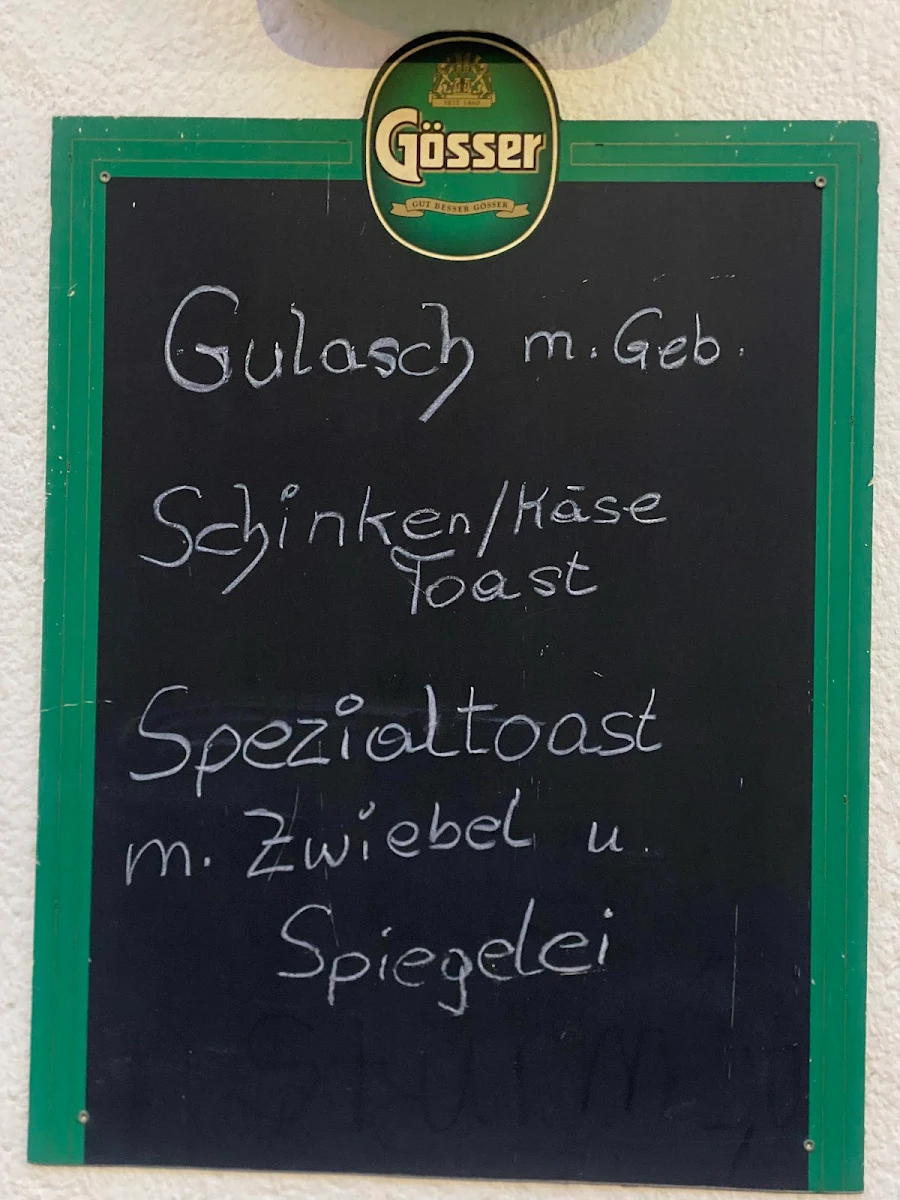 SEIT 1860
Gösser
GUT BESSER GÖSSER
Gulasch m. Geb.
Schinken/Käse
Toast
Spezialtoast
m. Zwiebel u.
Spiegelei
Sturm